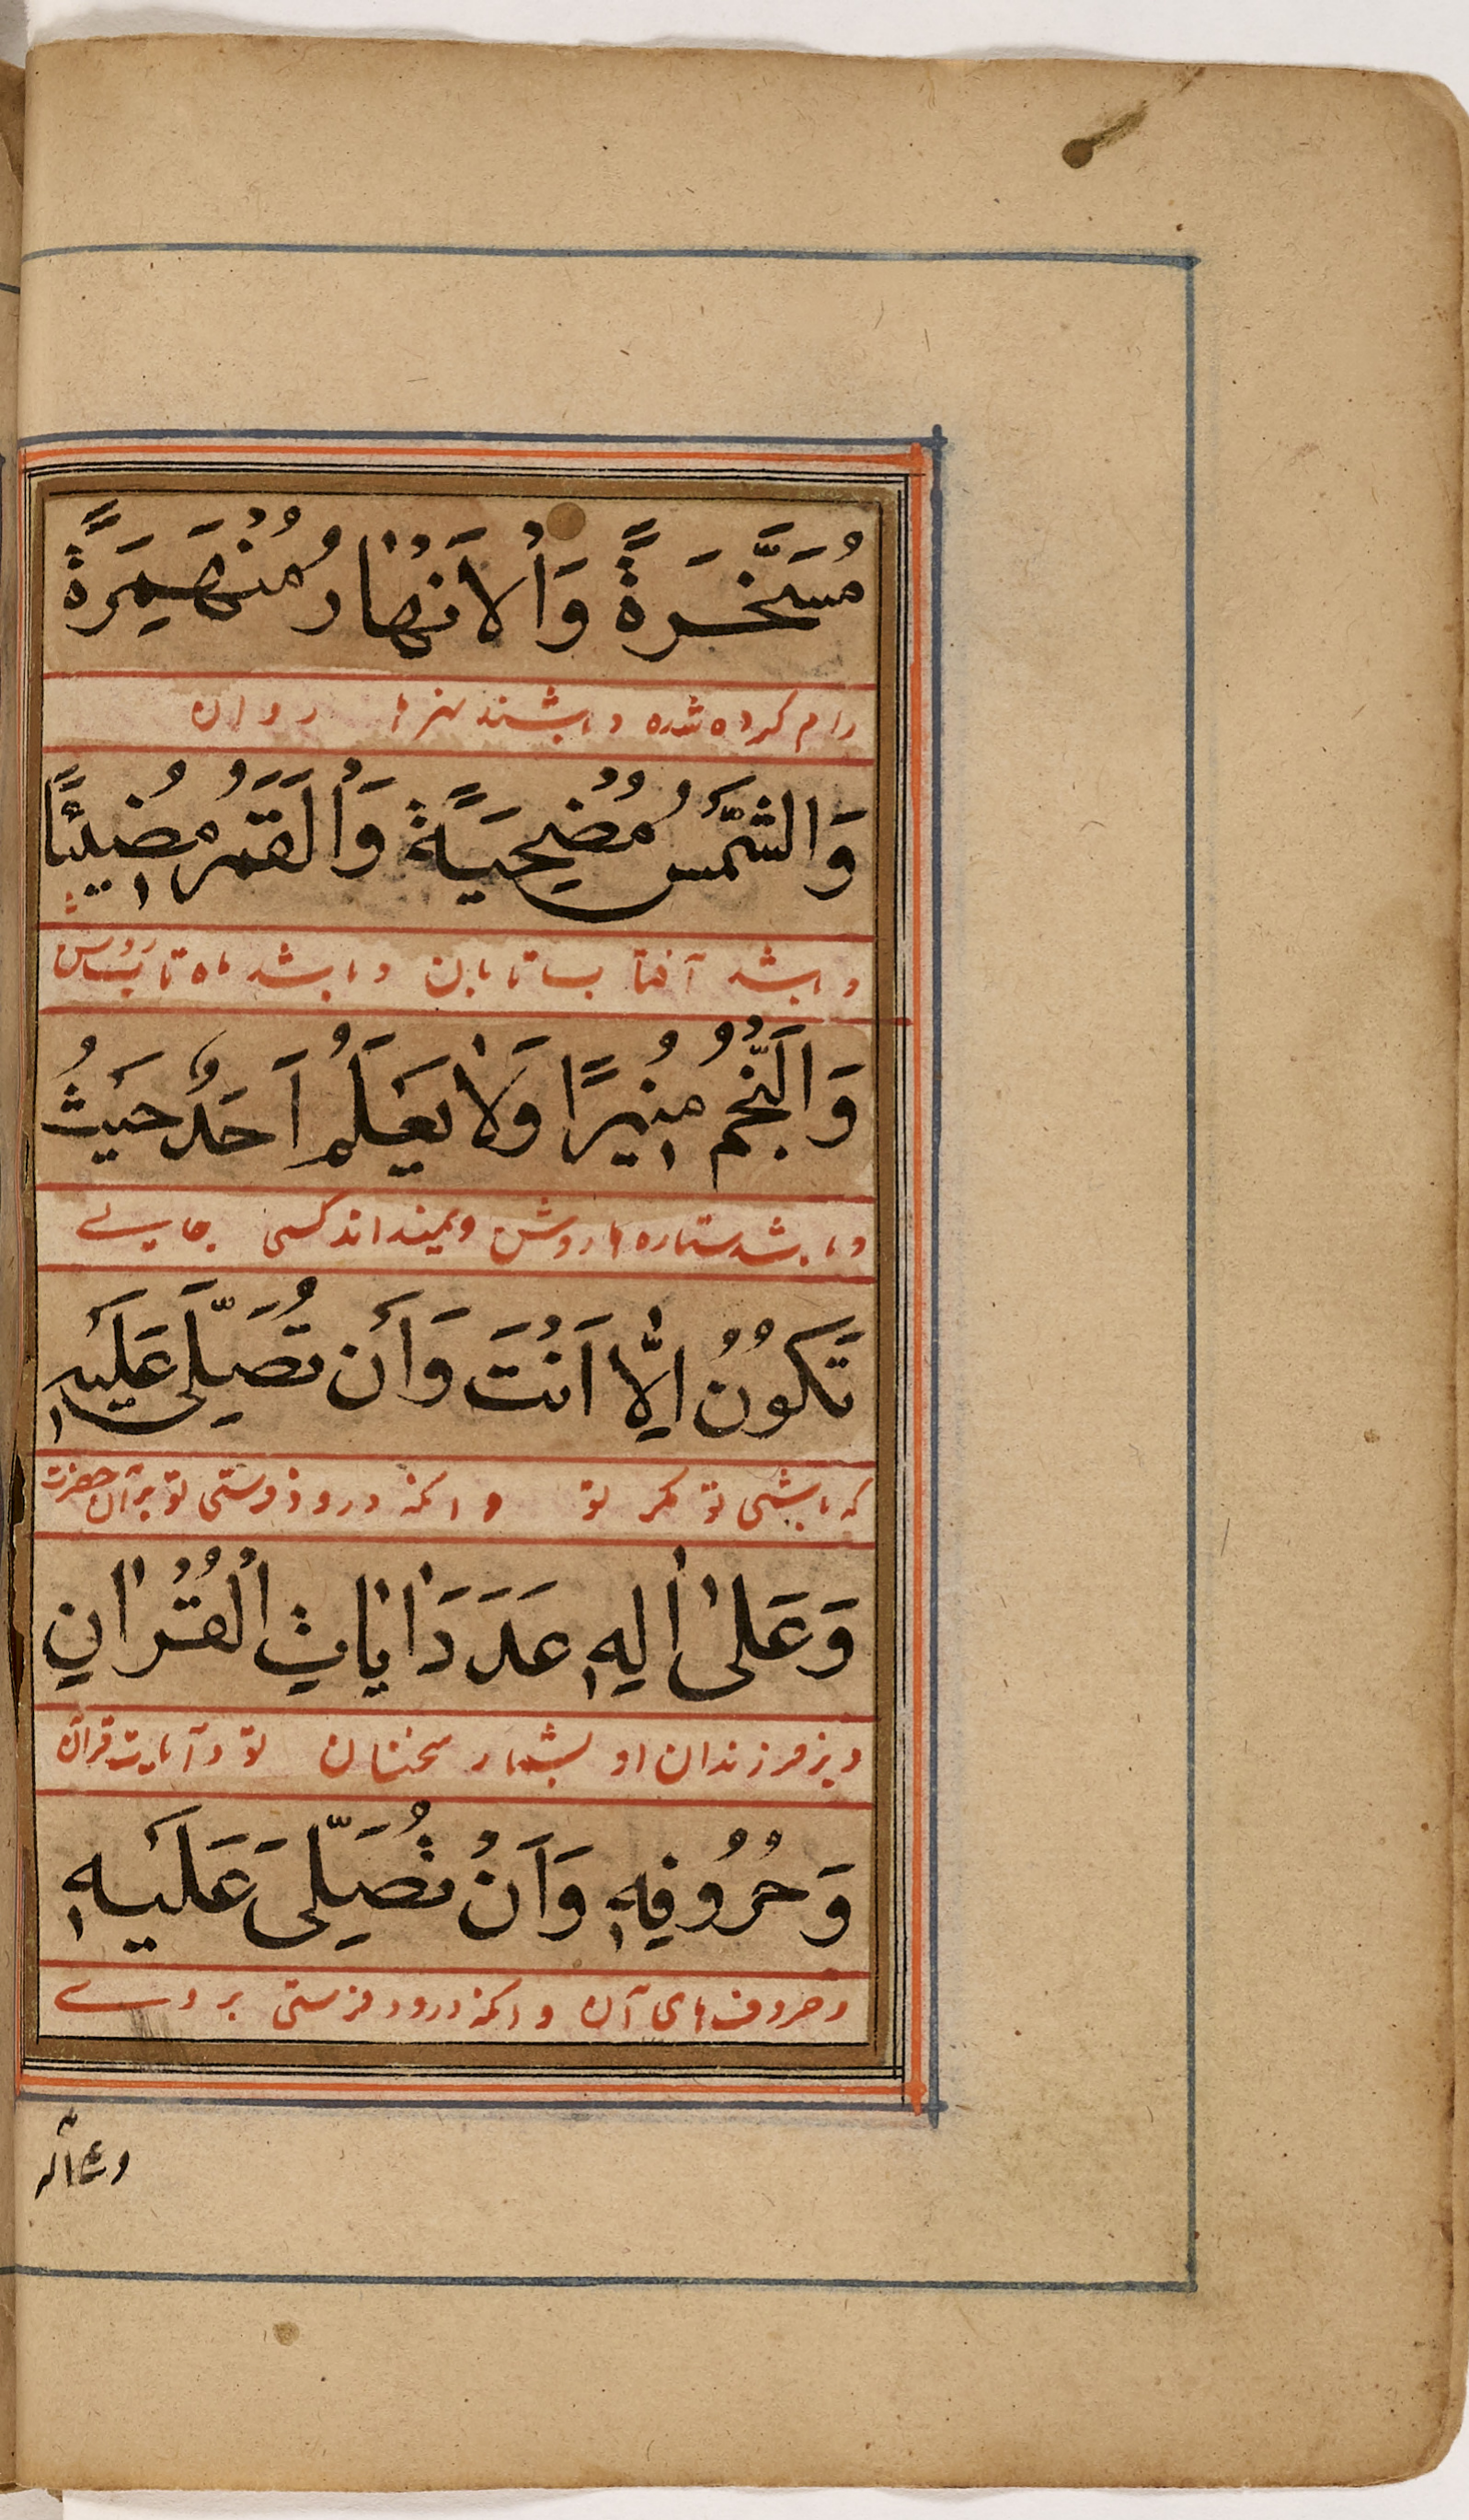 مُسَخَّرَةً وَالْاَنْهَارُ مُنْهَمِرَةً
رام کرده شده و باشند نهرها روان
وَالشَّمْسُ مُضْحِيَةً وَالْقَمَرُ مُضِيْئًا
و باشد آفتاب تابان و باشد ماه تابان
وَالنَّجْمُ مُنِيْرًا وَلَا يَعْلَمُ اَحَدٌ حَيْثُ
و باشد ستاره ها روشن و نمیداند کسی جایے
تَكُوْنُ اِلَّا اَنْتَ وَاَنْ تُصَلِّىَ عَلَيْهِ
که باشی تو مگر تو و آنکه درود فرستی تو بر آن حضرت
وَعَلٰى اٰلِهٖ عَدَدَ اٰيَاتِ الْقُرْاٰنِ
و بر فرزندان او بشمار سخنان تو و آیات قرآن
وَحُرُوْفِهٖ وَاَنْ تُصَلِّىَ عَلَيْهِ
و حروف های آن و آنکه درود فرستی بر وے
وعلی آله